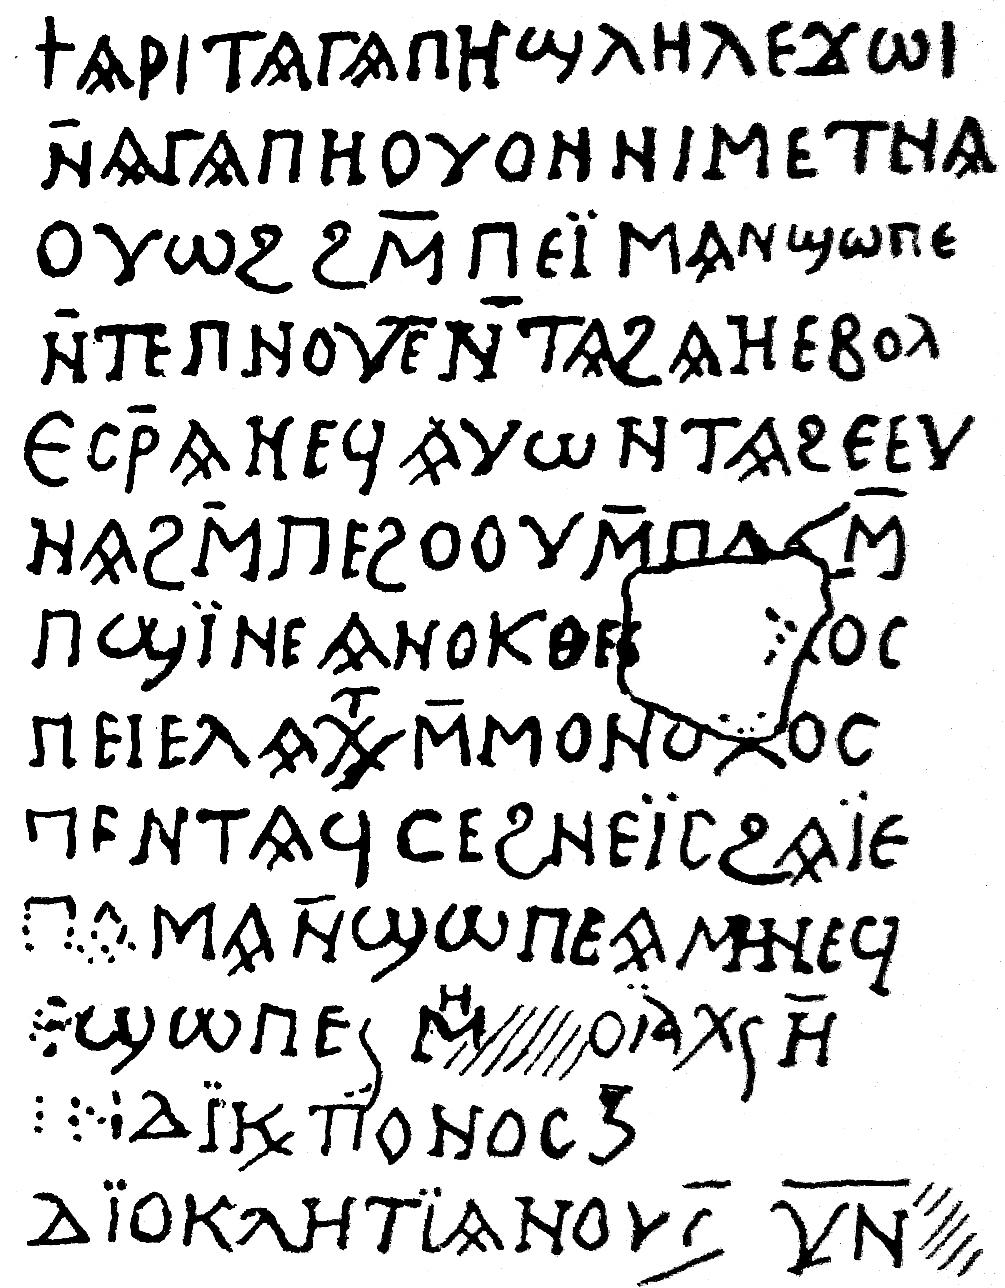 ϯⲀⲢⲒⲦⲀⲄⲀⲠⲎϢⲖⲎⲖⲈϪⲰⲒ
Ⲛ̄ⲀⲄⲀⲠⲎⲞⲨⲞⲚⲚⲒⲘⲈⲦⲚⲀ
ⲞⲨⲰϨϨⲘ̄ⲠⲈⲒ̈ⲘⲀⲚϢⲰⲠⲈ
Ⲛ̄ⲦⲈⲠⲚⲞⲨⲦⲈⲚ̄ⲦⲀϨⲀⲎⲈⲂⲞⲖ
ⲈⲤⲢ̄ⲀⲚⲈϤⲀⲨⲰⲚⲦⲀϨⲈⲈⲨ
ⲚⲀϨⲘ̄ⲠⲈϨⲞⲞⲨⲘ̄ⲠⲀ Ⲙ̄
ⲠϢⲒ̈ⲚⲈⲀⲚⲞⲔⲐⲈ ⲞⲤ
ⲠⲈⲒⲈⲖⲀⲬⲦⲘ̄ⲘⲞⲚⲞⲬⲞⲤ
ⲠⲈⲚⲦⲀϤⲤⲈϨⲚⲈⲒ̈ⲤϨⲀⲒ̈Ⲉ
ⲠⲀⲘⲀⲚ̄ϢⲰⲠⲈⲀⲘⲎⲚⲈϤ
ϢⲰⲠⲈ ⲘⲎ ⲞⲒⲀⲬ Ⲏ̄
ⲒⲚⲆⲒ̈Ⲕ ⲠⲞⲚⲞⲤ
ⲆⲒ̈ⲞⲔⲖⲎⲦⲒ̈ⲀⲚⲞⲨ ⲨⲚ